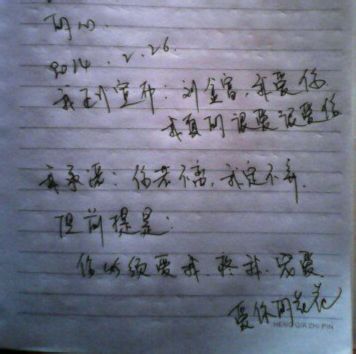 2014.2.26.
我宣布：刘金宝，我爱你
我真的很爱很爱你
我承诺：你若不离，我定不弃.
但前提是：
你必须爱我、疼我、宠爱
爱你的花花
HENG QIA ZHI PIN